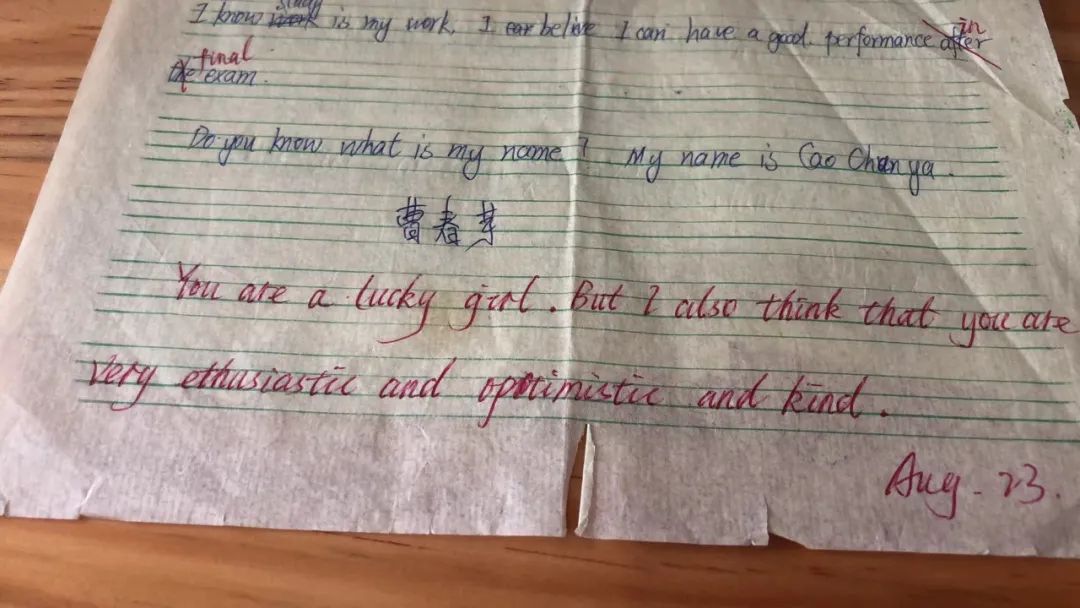 study in
I know work is my work, I can belive I can have a good performance after
final
the exam.
Do you know what is my name? My name is Cao Chunya.
曹春芽
You are a lucky girl. But I also think that you are
very ethusiastic and optimistic and kind.
Aug. 23.